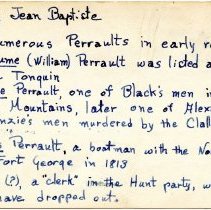 Jean Baptiste
umerous Perraults in early re
ume (William) Perrault was listed a
Tonquin
e Perrault, one of Black's men in
Mountains, later one of Alex
nzie's men murdered by the Clall
Perrault, a boatman with the No
Fort George in 1813
(?), a "clerk" in the Hunt party, w
have dropped out.